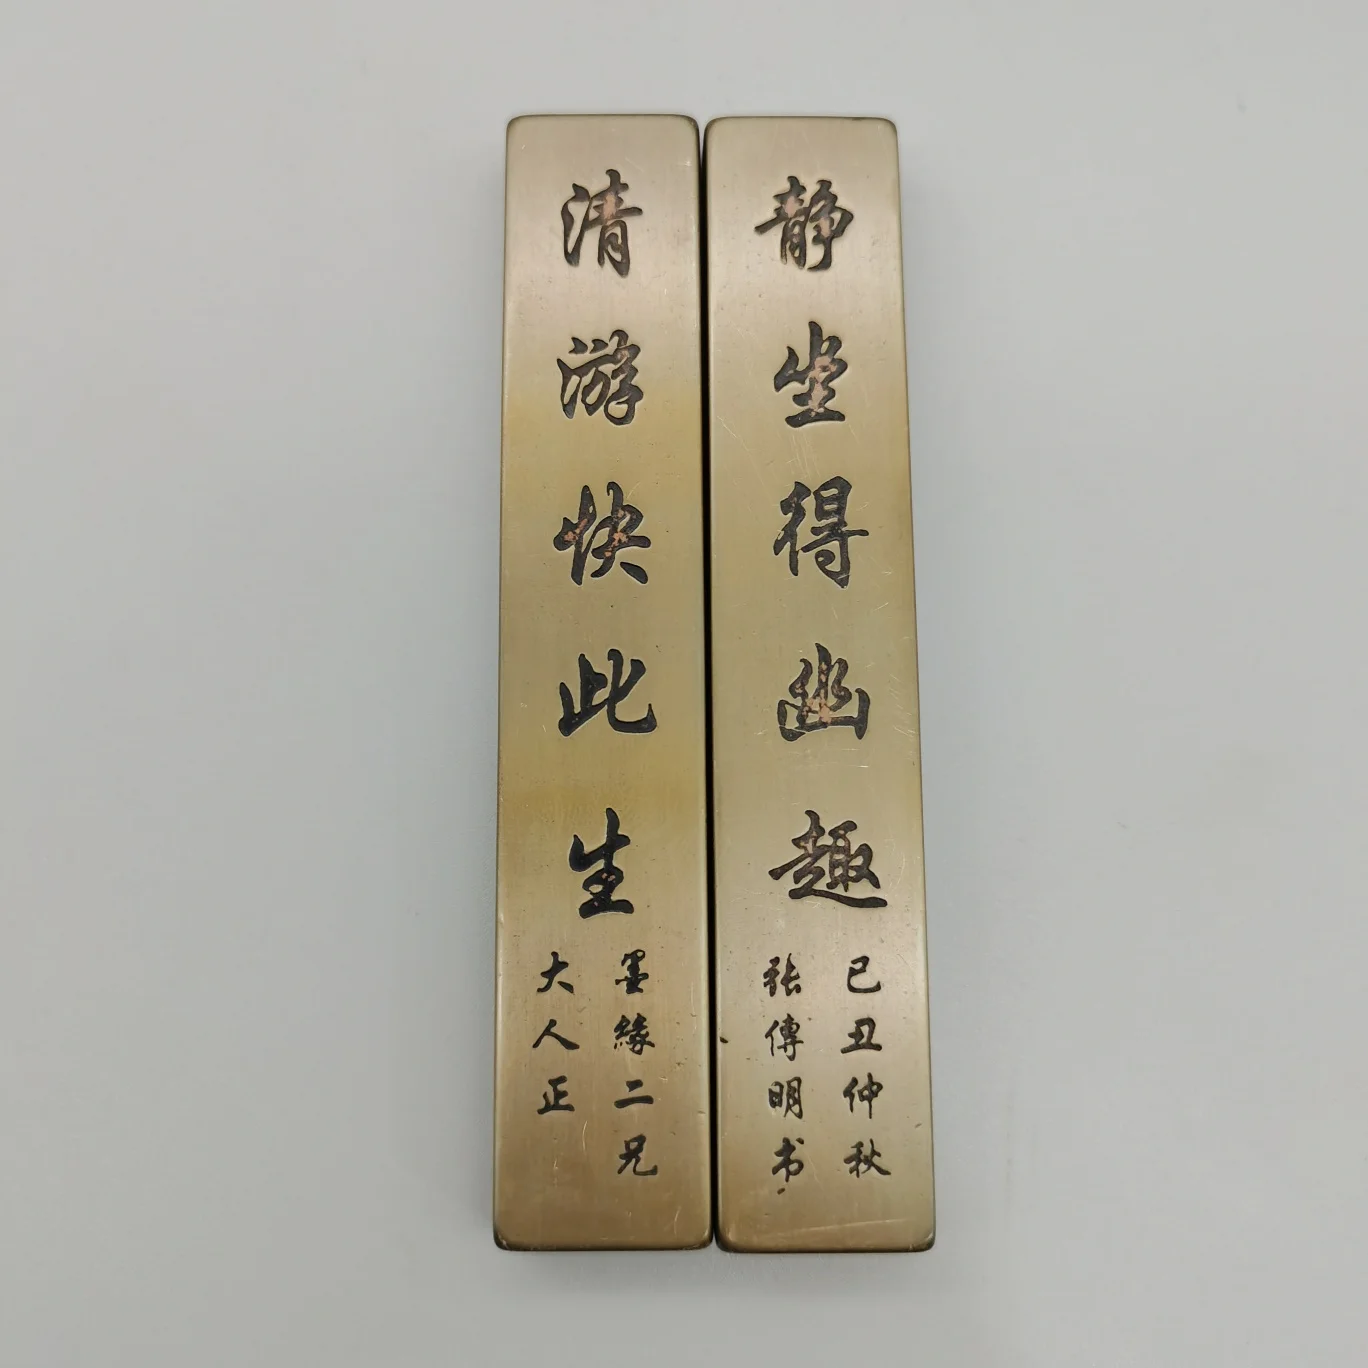 静坐得幽趣
己丑仲秋
张傳明书
清游快此生
墨緣二兄
大人正